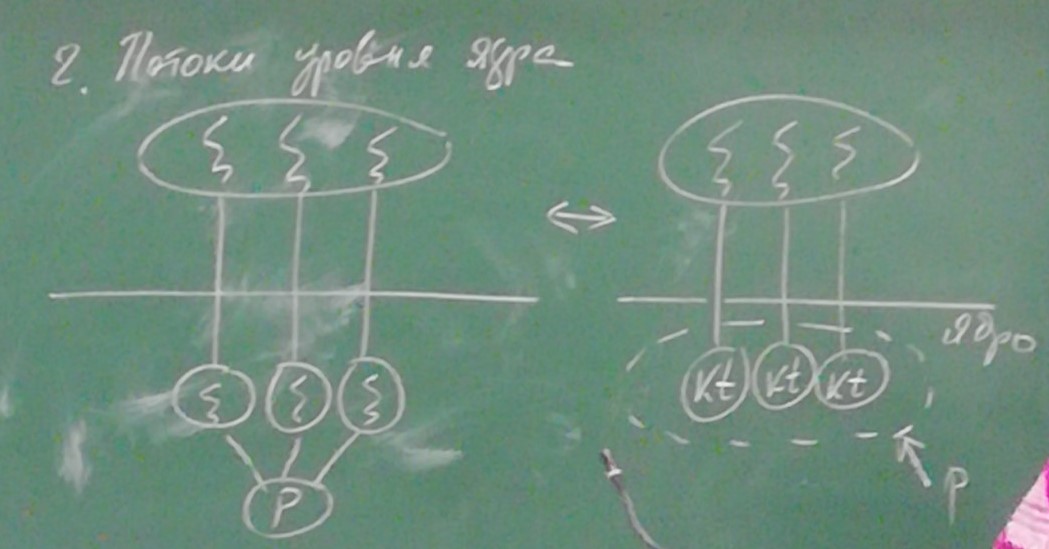 2. Потоки уровня ядра
ядро
Kt Kt Kt
P
P